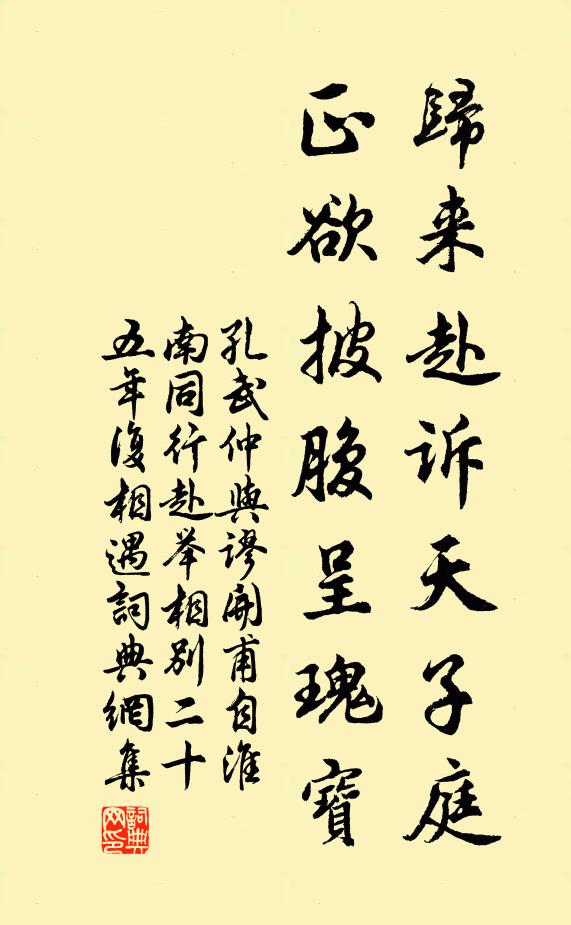 歸来赴诉天子庭
正欲披腹呈瑰寶
孔武仲與謬開甫自淮
南同行赴举相别二十
五年復相遇詞典網集
詞典
网印